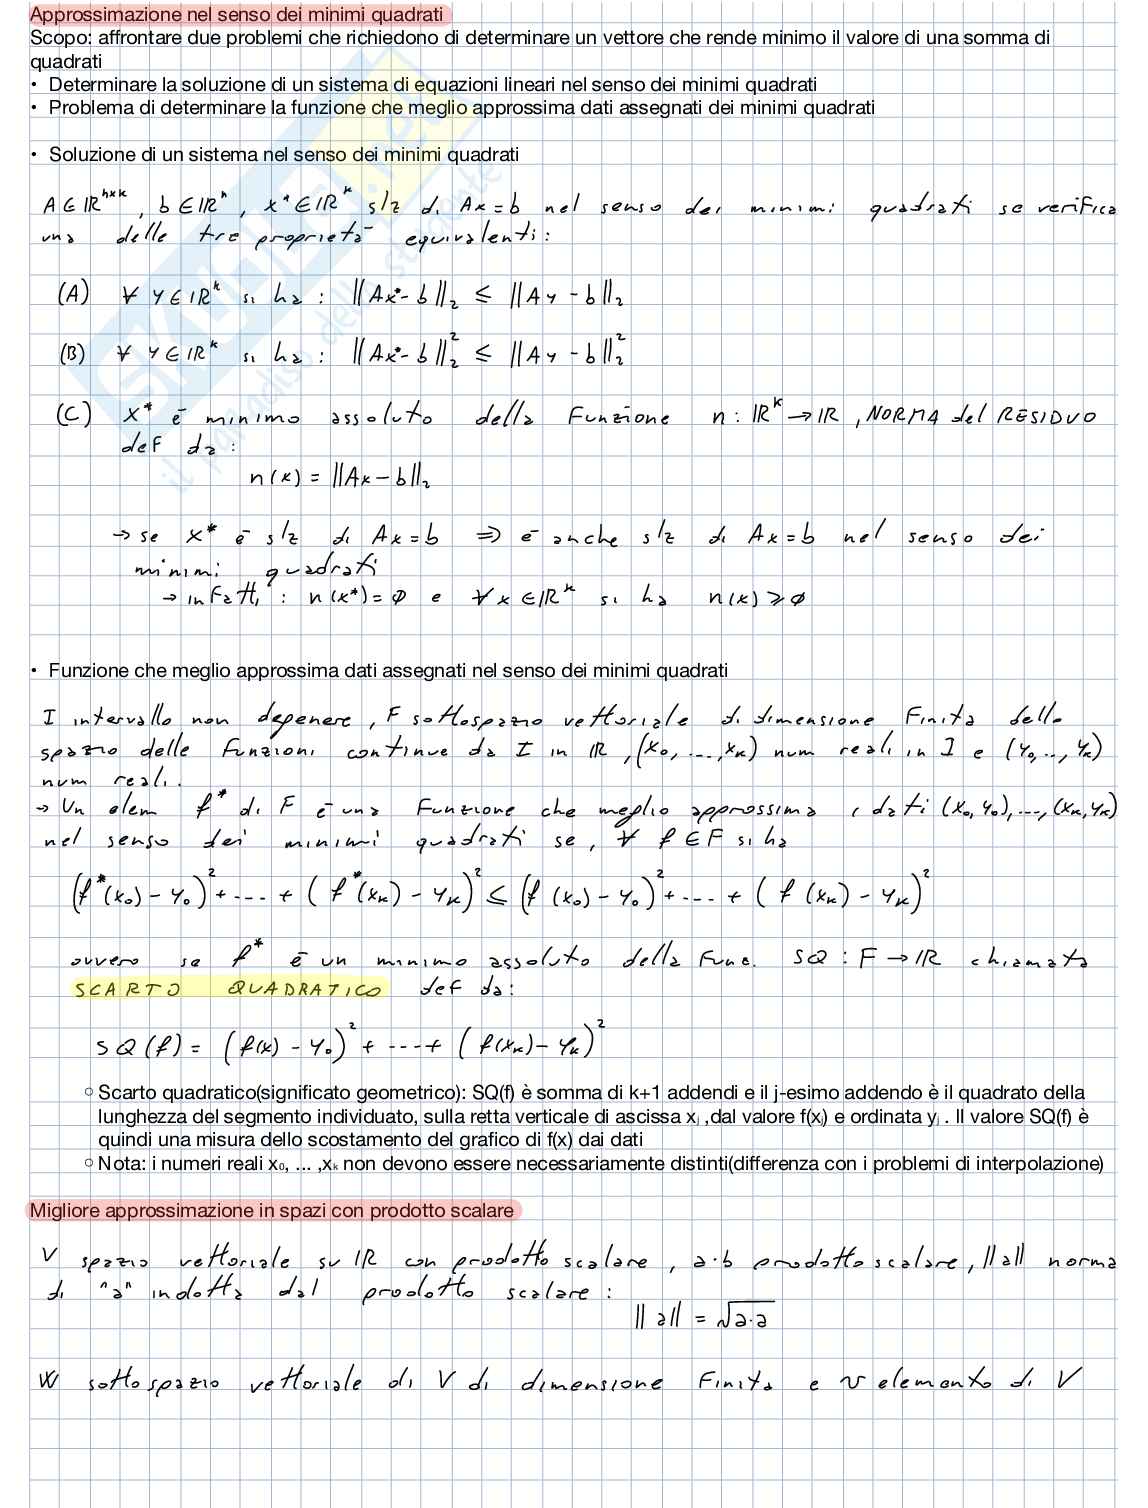 Approssimazione nel senso dei minimi quadrati
Scopo: affrontare due problemi che richiedono di determinare un vettore che rende minimo il valore di una somma di
quadrati
• Determinare la soluzione di un sistema di equazioni lineari nel senso dei minimi quadrati
• Problema di determinare la funzione che meglio approssima dati assegnati dei minimi quadrati
• Soluzione di un sistema nel senso dei minimi quadrati
A ∈ ℝ^{n×k}, b ∈ ℝ^n, x* ∈ ℝ^k s/z di Ax=b nel senso dei minimi quadrati se verifica
una delle tre proprietà equivalenti:
(A) ∀ y ∈ ℝ^k si ha : ||Ax*-b||₂ ≤ ||Ay-b||₂
(B) ∀ y ∈ ℝ^k si ha : ||Ax*-b||₂² ≤ ||Ay-b||₂²
(C) x* è minimo assoluto della Funzione n: ℝ^k → ℝ, NORMA del RESIDUO
def da:
n(x) = ||Ax-b||₂
→ se x* è s/z di Ax=b ⇒ è anche s/z di Ax=b nel senso dei
minimi quadrati
→ infatti: n(x*)=0 e ∀x∈ℝ^k si ha n(x) ≥ 0
• Funzione che meglio approssima dati assegnati nel senso dei minimi quadrati
I intervallo non degenere, F sottospazio vettoriale di dimensione Finita dello
spazio delle Funzioni continue da I in ℝ, (x₀, ..., xₖ) num reali in I e (y₀, .., yₖ)
num reali.
→ Un elem f* di F è una Funzione che meglio approssima i dati (x₀,y₀), ..., (xₖ,yₖ)
nel senso dei minimi quadrati se, ∀ f∈F si ha
(f*(x₀)-y₀)² + ---- + (f*(xₖ)-yₖ)² ≤ (f(x₀)-y₀)² + --- + (f(xₖ)-yₖ)²
ovvero se f* è un minimo assoluto della Funz. SQ : F → ℝ chiamata
SCARTO QUADRATICO def da:
SQ(f) = (f(x)-y₀)² + ---+ (f(xₖ)-yₖ)²
○ Scarto quadratico(significato geometrico): SQ(f) è somma di k+1 addendi e il j-esimo addendo è il quadrato della
lunghezza del segmento individuato, sulla retta verticale di ascissa xⱼ ,dal valore f(xⱼ) e ordinata yⱼ . Il valore SQ(f) è
quindi una misura dello scostamento del grafico di f(x) dai dati
○ Nota: i numeri reali x₀, ... ,xₖ non devono essere necessariamente distinti(differenza con i problemi di interpolazione)
Migliore approssimazione in spazi con prodotto scalare
V spazio vettoriale su ℝ con prodotto scalare, a·b prodotto scalare, ||a|| norma
di "a" indotta dal prodotto scalare :
||a|| = √a·a
W sottospazio vettoriale di V di dimensione Finita e v elemento di V
SKUOLA.net
il paradiso dello studente